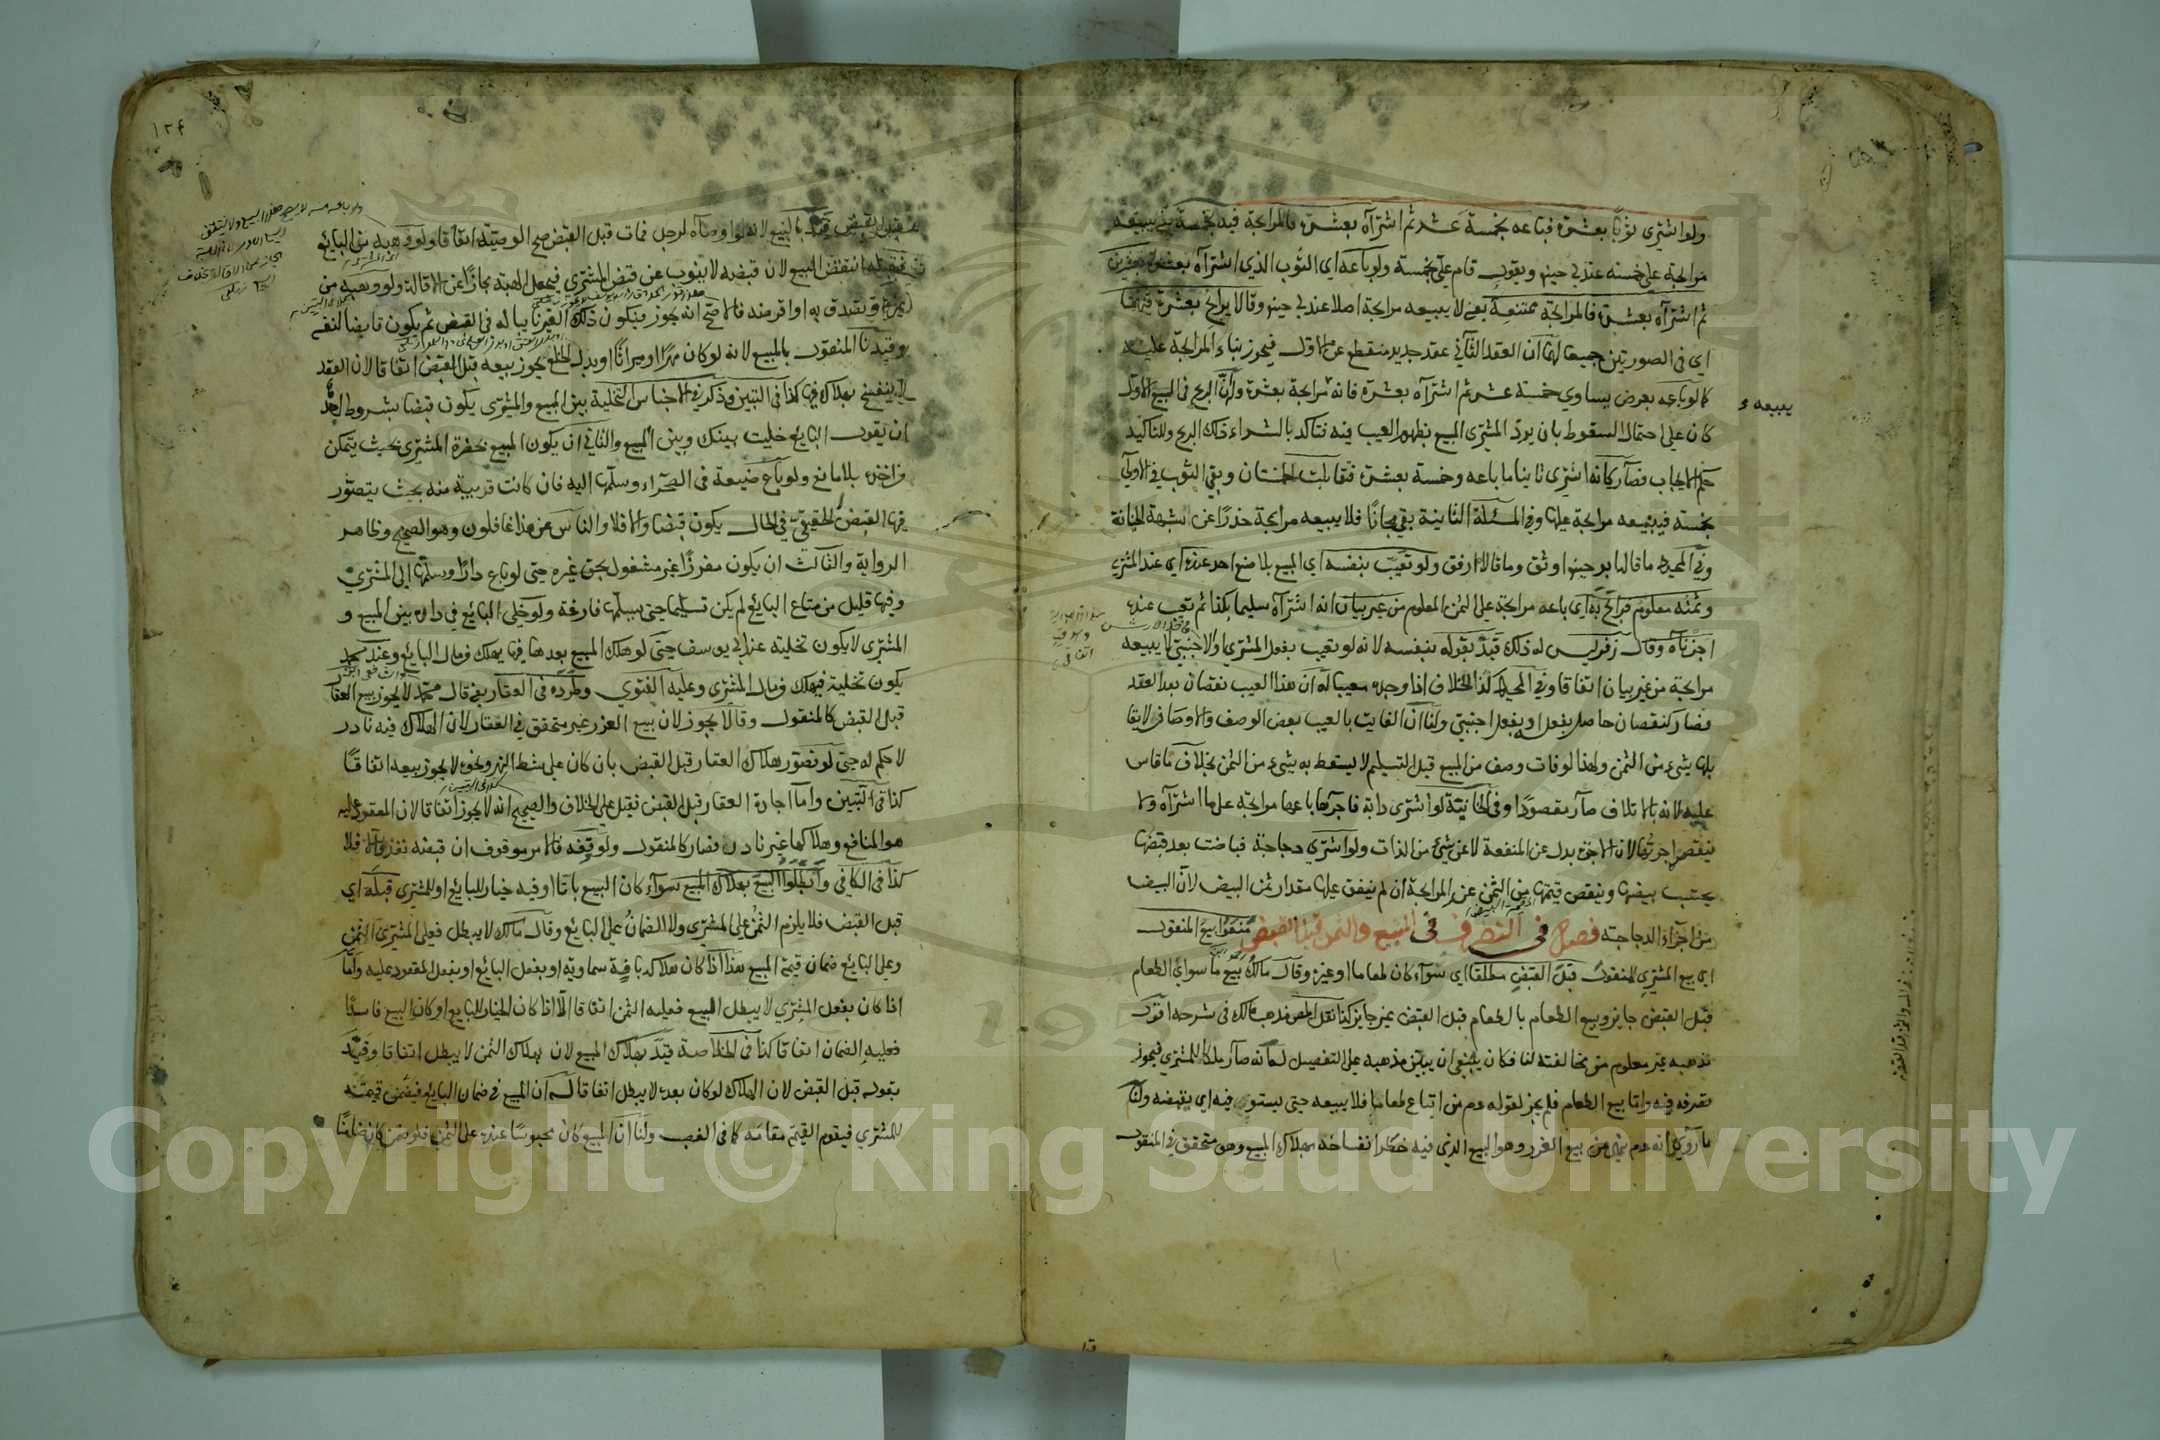 ولو اشترى ثوبًا بعشرة فباعه بخمسة عشر ثم اشتراه بعشرة فالمرابحة فيه بخمسة يعني يبيعه
مرابحة على خمسة عند ابي حنيفة ويقول قام علي بخمسة ولو باعه اي الثوب الذي اشتراه بعشرة بعشرين
ثم اشتراه بعشرة فالمرابحة ممتنعة يعني لا يبيعه مرابحة اصلا عند ابي حنيفة وقالا يرابح بعشرة فيهما
اي في الصورتين جميعا لهما ان العقد الثاني عقد جديد منقطع عن الاول فيجوز بناء المرابحة عليه
كما لو باعه بعرض يساوي خمسة عشر ثم اشتراه بعشرة فانه مرابحة بعشرة وله ان الربح في البيع الاول
يبيعه
كان على احتمال السقوط بان يرد المشتري المبيع بظهور العيب فيه فتاكد بالشراء ذلك الربح وللتاكيد
حكم الايجاب فصار كانه اشترى ثانيا ما باعه وخمسة بعشرة فتقابلت الخمستان وبقي الثوب في الاولى
بخمسة فيبيعه مرابحة عليها وفي المسئلة الثانية بقي مجانًا فلا يبيعه مرابحة حذرًا عن شبهة الخيانة
وفي المحيط ما قاله ابو حنيفة اوثق وما قالا ارفق ولو تعيب بنفسه اي المبيع بلا صنع احد عنده اي عند المشتري
وثمنه معلوم فرابح به اي باعه مرابحة على الثمن المعلوم من غير بيان انه اشتراه سليما بكذا ثم تعيب عنده
اجزناه وقال زفر ليس له ذلك قيد بقوله بنفسه لانه لو تعيب بفعل المشتري او الاجنبي لا يبيعه
مرابحة من غير بيان اتفاقا وفي المحيط لذا الخلاف اذا وجده معيبا له ان هذا العيب نقصان بعد العقد
فصار كنقصان حاصل بفعله او بفعل اجنبي ولنا ان الفايت بالعيب بعض الوصف والاوصاف لا يقا
بلها شيء من الثمن ولهذا لو فات وصف من المبيع قبل التسليم لا يسقط به شيء من الثمن بخلاف ما قاس
عليه لانه بالاتلاف صار مقصودًا وفي الخانية لو اشترى دابة فاجرها باعها مرابحة على ما اشتراه ولا
ينقص اجرتها لان الاجرة بدل عن المنفعة لا عن شيء من الذات ولو اشترى دجاجة فباضت بعد قبضها
يحتسب بيضها وينقص قيمتها من الثمن عند المرابحة ان لم ينفق عليها مقدار ثمن البيض لان البيض
من اجزاء الدجاجة فصل في التصرف في المبيع والثمن قبل القبض منعوا بيع المنقول
اي بيع المشتري المنقول قبل القبض مطلقا اي سواء كان طعاما او غيره وقال مالك بيع ما سوى الطعام
قبل القبض جايز وبيع الطعام بالطعام قبل القبض غير جايز كذا نقل المص مذهب مالك في شرحه اقول
مذهبه غير معلوم من مخالفته لنا فكان ينبغي ان يبين مذهبه على التفصيل له انه صار ملكا للمشتري فيجوز
تصرفه فيه واما بيع الطعام فلم يجز لقوله عم من ابتاع طعاما فلا يبيعه حتى يستوفيه اي يقبضه ولنا
ما روي انه عم نهى عن بيع الغرر وهو البيع الذي فيه خطر انفساخه بهلاك المبيع وهو متحقق في المنقول
١٢٤
قبل القبض قيد بالبيع لانه لو اوصاه لرجل فمات قبل القبض صح الوصية اتفاقا ولو وهبه من البايع
فقبله انتقض البيع لان قبضه لا ينوب عن قبض المشتري فيجعل الهبة مجازًا عن الاقالة ولو وهبه من
غيره او تصدق به او اقرضه فالاصح انه يجوز فيكون ذلك الغير نايبا له في القبض ثم يكون قابضا لنفسه
وقيدنا المنقول بالمبيع لانه لو كان مهرًا او ميراثًا او بدل الخلع يجوز بيعه قبل القبض اتفاقا لان العقد
لا ينفسخ بهلاكه فيها كذا في التبيين وذكر في الاجناس التخلية بين المبيع والمشتري يكون قبضا بشروط احدها
ان يقول البايع خليت بينك وبين المبيع والثاني ان يكون المبيع بحضرة المشتري بحيث يتمكن
من اخذه بلا مانع ولو باع ضيعة في الصحراء وسلمها اليه فان كانت قريبة منه بحيث يتصور
فيها القبض الحقيقي في الحال يكون قبضا والا فلا والناس عن هذا غافلون وهو الصحيح وظاهر
الرواية والثالث ان يكون مفرزًا غير مشغول بحق غيره حتى لو باع دارًا وسلمها الى المشتري
وفيها قليل من متاع البايع لم يكن تسليما حتى يسلمها فارغة ولو خلى البايع في داره بين المبيع و
المشتري لا يكون تخلية عند ابي يوسف حتى لو هلك المبيع بعدها فيها يهلك من مال البايع وعند محمد
يكون تخلية فيهلك من مال المشتري وعليه الفتوى وطرده في العقار يعني قال محمد لا يجوز بيع العقار
قبل القبض كالمنقول وقالا يجوز لان بيع الغرر غير متحقق في العقار لان الهلاك فيه نادر
لا حكم له حتى لو تصور هلاك العقار قبل القبض بان كان على شط النهر ونحوه لا يجوز بيعه اتفاقًا
كذا في التبيين واما اجارة العقار قبل القبض فقيل على الخلاف والصحيح انه لا يجوز اتفاقا لان المعقود عليه
هو المنافع وهلاكها غير نادر فصار كالمنقول ولو وقفه فالامر موقوف ان قبضه نفذ والا فلا
كذا في الكافي وابطلوا البيع بهلاك المبيع سواء كان البيع باتا او فيه خيار للبايع او للمشتري قبله اي
قبل القبض فلا يلزم الثمن على المشتري ولا الضمان على البايع وقال مالك لا يبطل فعلى المشتري الثمن
وعلى البايع ضمان قيمة المبيع هذا اذا كان هلاكه بافة سماوية او بفعل البايع او بفعل المعقود عليه واما
اذا كان بفعل المشتري لا يبطل البيع فعليه الثمن اتفاقا الا اذا كان الخيار للبايع او كان البيع فاسدًا
فعليه الضمان اتفاقا كذا في الخلاصة قيد بهلاك المبيع لان بهلاك الثمن لا يبطل اتفاقا وقيد
بقوله قبل القبض لان الهلاك لو كان بعده لا يبطل اتفاقا له ان المبيع في ضمان البايع فيضمن قيمته
للمشتري فيقوم القيمة مقامه كما في الغصب ولنا ان المبيع كان محبوسًا عنده على الثمن فلو ضمن كان ضامنًا
Copyright © King Saud University